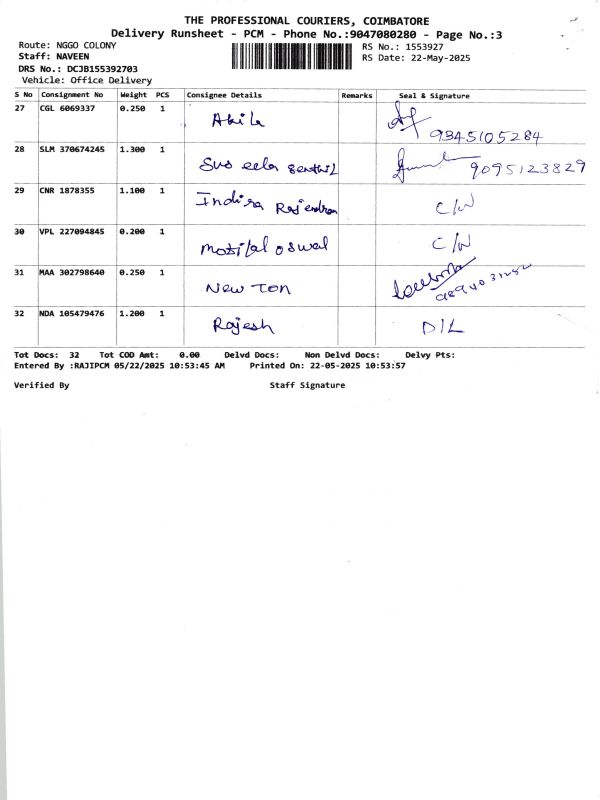 THE PROFESSIONAL COURIERS, COIMBATORE
Delivery Runsheet - PCM - Phone No.:9047080280 - Page No.:3
Route: NGGO COLONY RS No.: 1553927
Staff: NAVEEN RS Date: 22-May-2025
DRS No.: DCJB155392703
Vehicle: Office Delivery
S No Consignment No Weight PCS Consignee Details Remarks Seal & Signature
27 CGL 6069337 0.250 1 Akila 9345105284
28 SLM 370674245 1.300 1 9095123829
29 CNR 1878355 1.100 1 Indira Rajendran C/W
30 VPL 227094845 0.200 1 motilal oswal C/W
31 MAA 302798640 0.250 1 New Ton
32 NDA 105479476 1.200 1 Rajesh D/L
Tot Docs: 32 Tot COD Amt: 0.00 Delvd Docs: Non Delvd Docs: Delvy Pts:
Entered By :RAJIPCM 05/22/2025 10:53:45 AM Printed On: 22-05-2025 10:53:57
Verified By Staff Signature